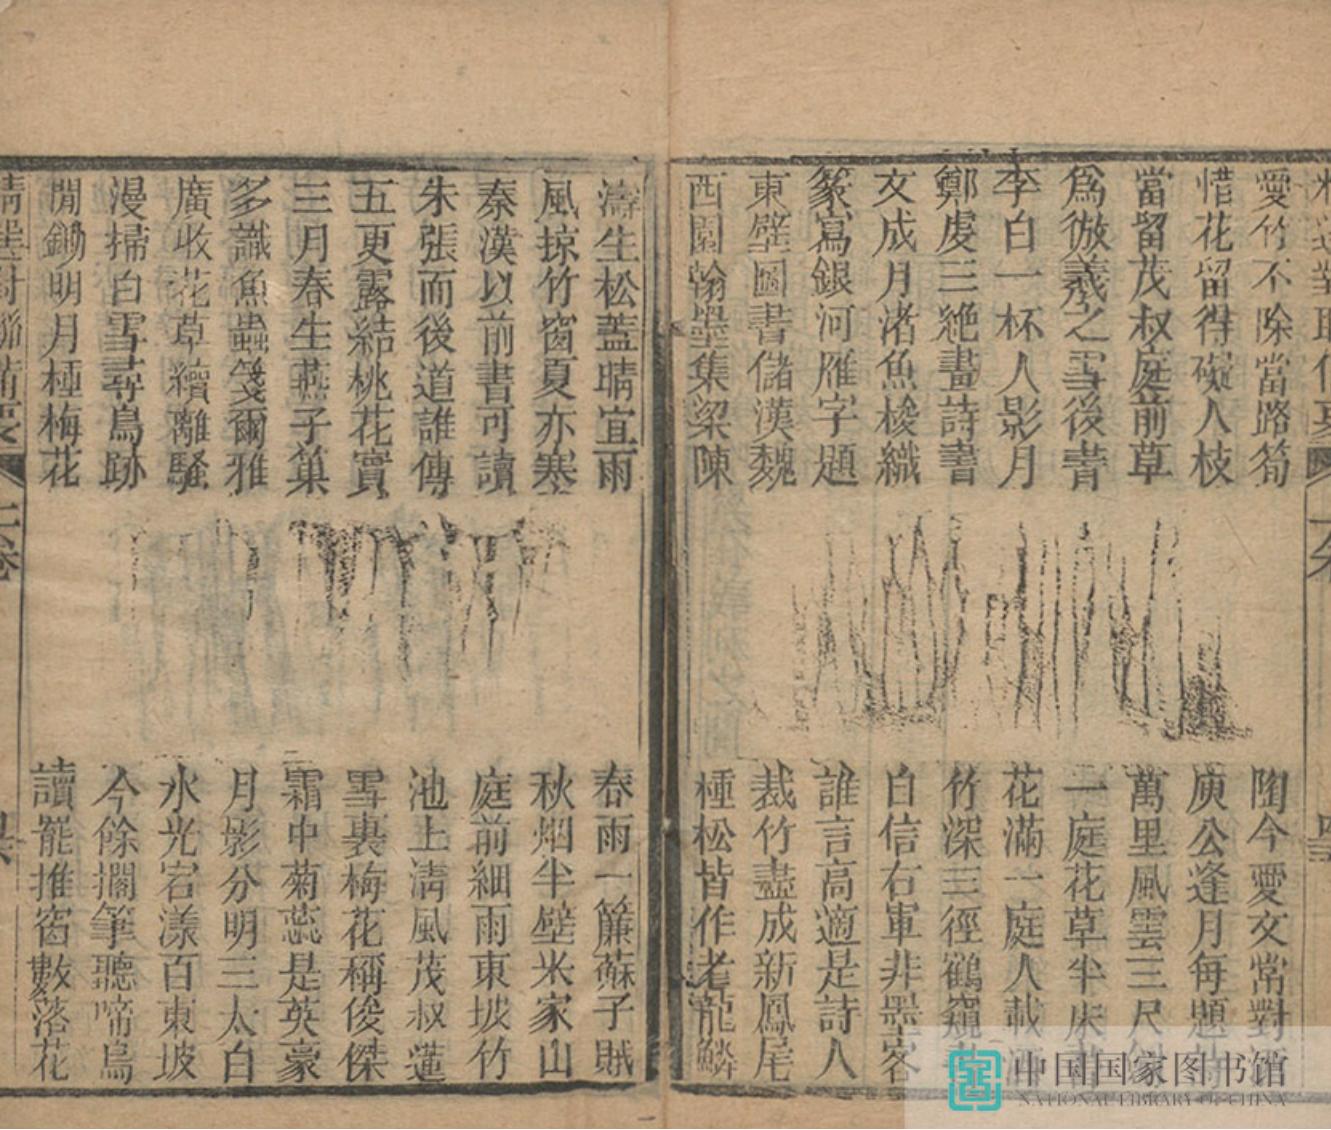 愛竹不除當路筍
惜花留得礙人枝
當留茂叔庭前草
爲倣羲之雪後書
李白一杯人影月
鄭虔三絶畫詩書
文成月渚魚梭織
篆寫銀河雁字題
東壁圖書儲漢魏
西園翰墨集梁陳
陶今愛交常對
庾公逢月每題詩
萬里風雲三尺劍
一庭花草半床書
花滿一庭人載酒
竹深三徑鶴窺
白信右軍非墨客
誰言高適是詩人
裁竹盡成新鳳尾
種松皆作老龍鱗
濤生松蓋晴宜雨
風掠竹窗夏亦寒
秦漢以前書可讀
朱張而後道誰傳
五更露結桃花實
三月春生燕子巢
多識魚蟲箋爾雅
廣收花草續離騷
漫掃白雪尋鳥跡
閒鋤明月種梅花
春雨一簾蘇子賦
秋烟半壁米家山
庭前細雨東坡竹
池上清風茂叔蓮
雪裏梅花稱俊傑
霜中菊蕊是英豪
月影分明三太白
水光宕漾百東坡
今餘擱筆聽啼鳥
讀罷推窗數落花
精選對聯備要
上卷
中国国家图书馆
NATIONAL LIBRARY OF CHINA